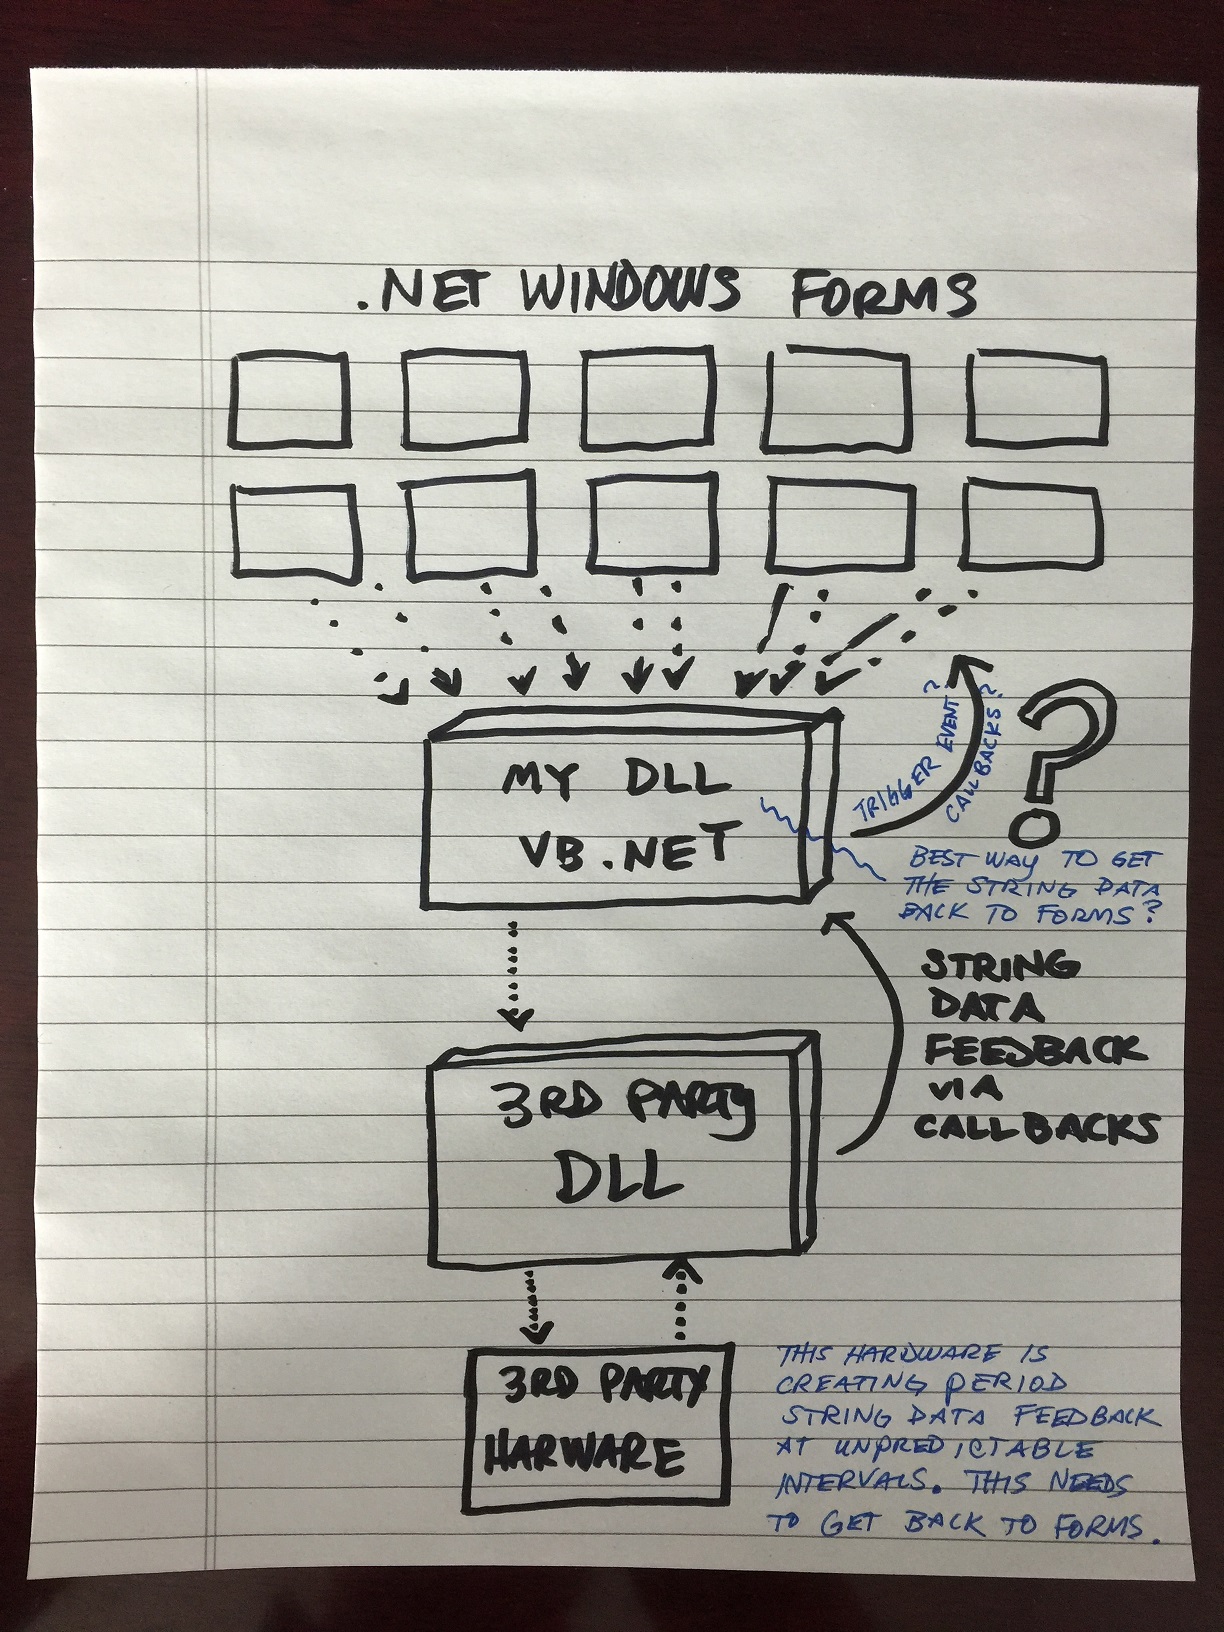 .NET WINDOWS FORMS
MY DLL
VB.NET
TRIGGER EVENT?
CALLBACKS?
?
BEST WAY TO GET
THE STRING DATA
BACK TO FORMS?
STRING
DATA
FEEDBACK
VIA
CALLBACKS
3RD PARTY
DLL
3RD PARTY
HARWARE
THIS HARDWARE IS
CREATING PERIOD
STRING DATA FEEDBACK
AT UNPREDICTABLE
INTERVALS. THIS NEEDS
TO GET BACK TO FORMS.